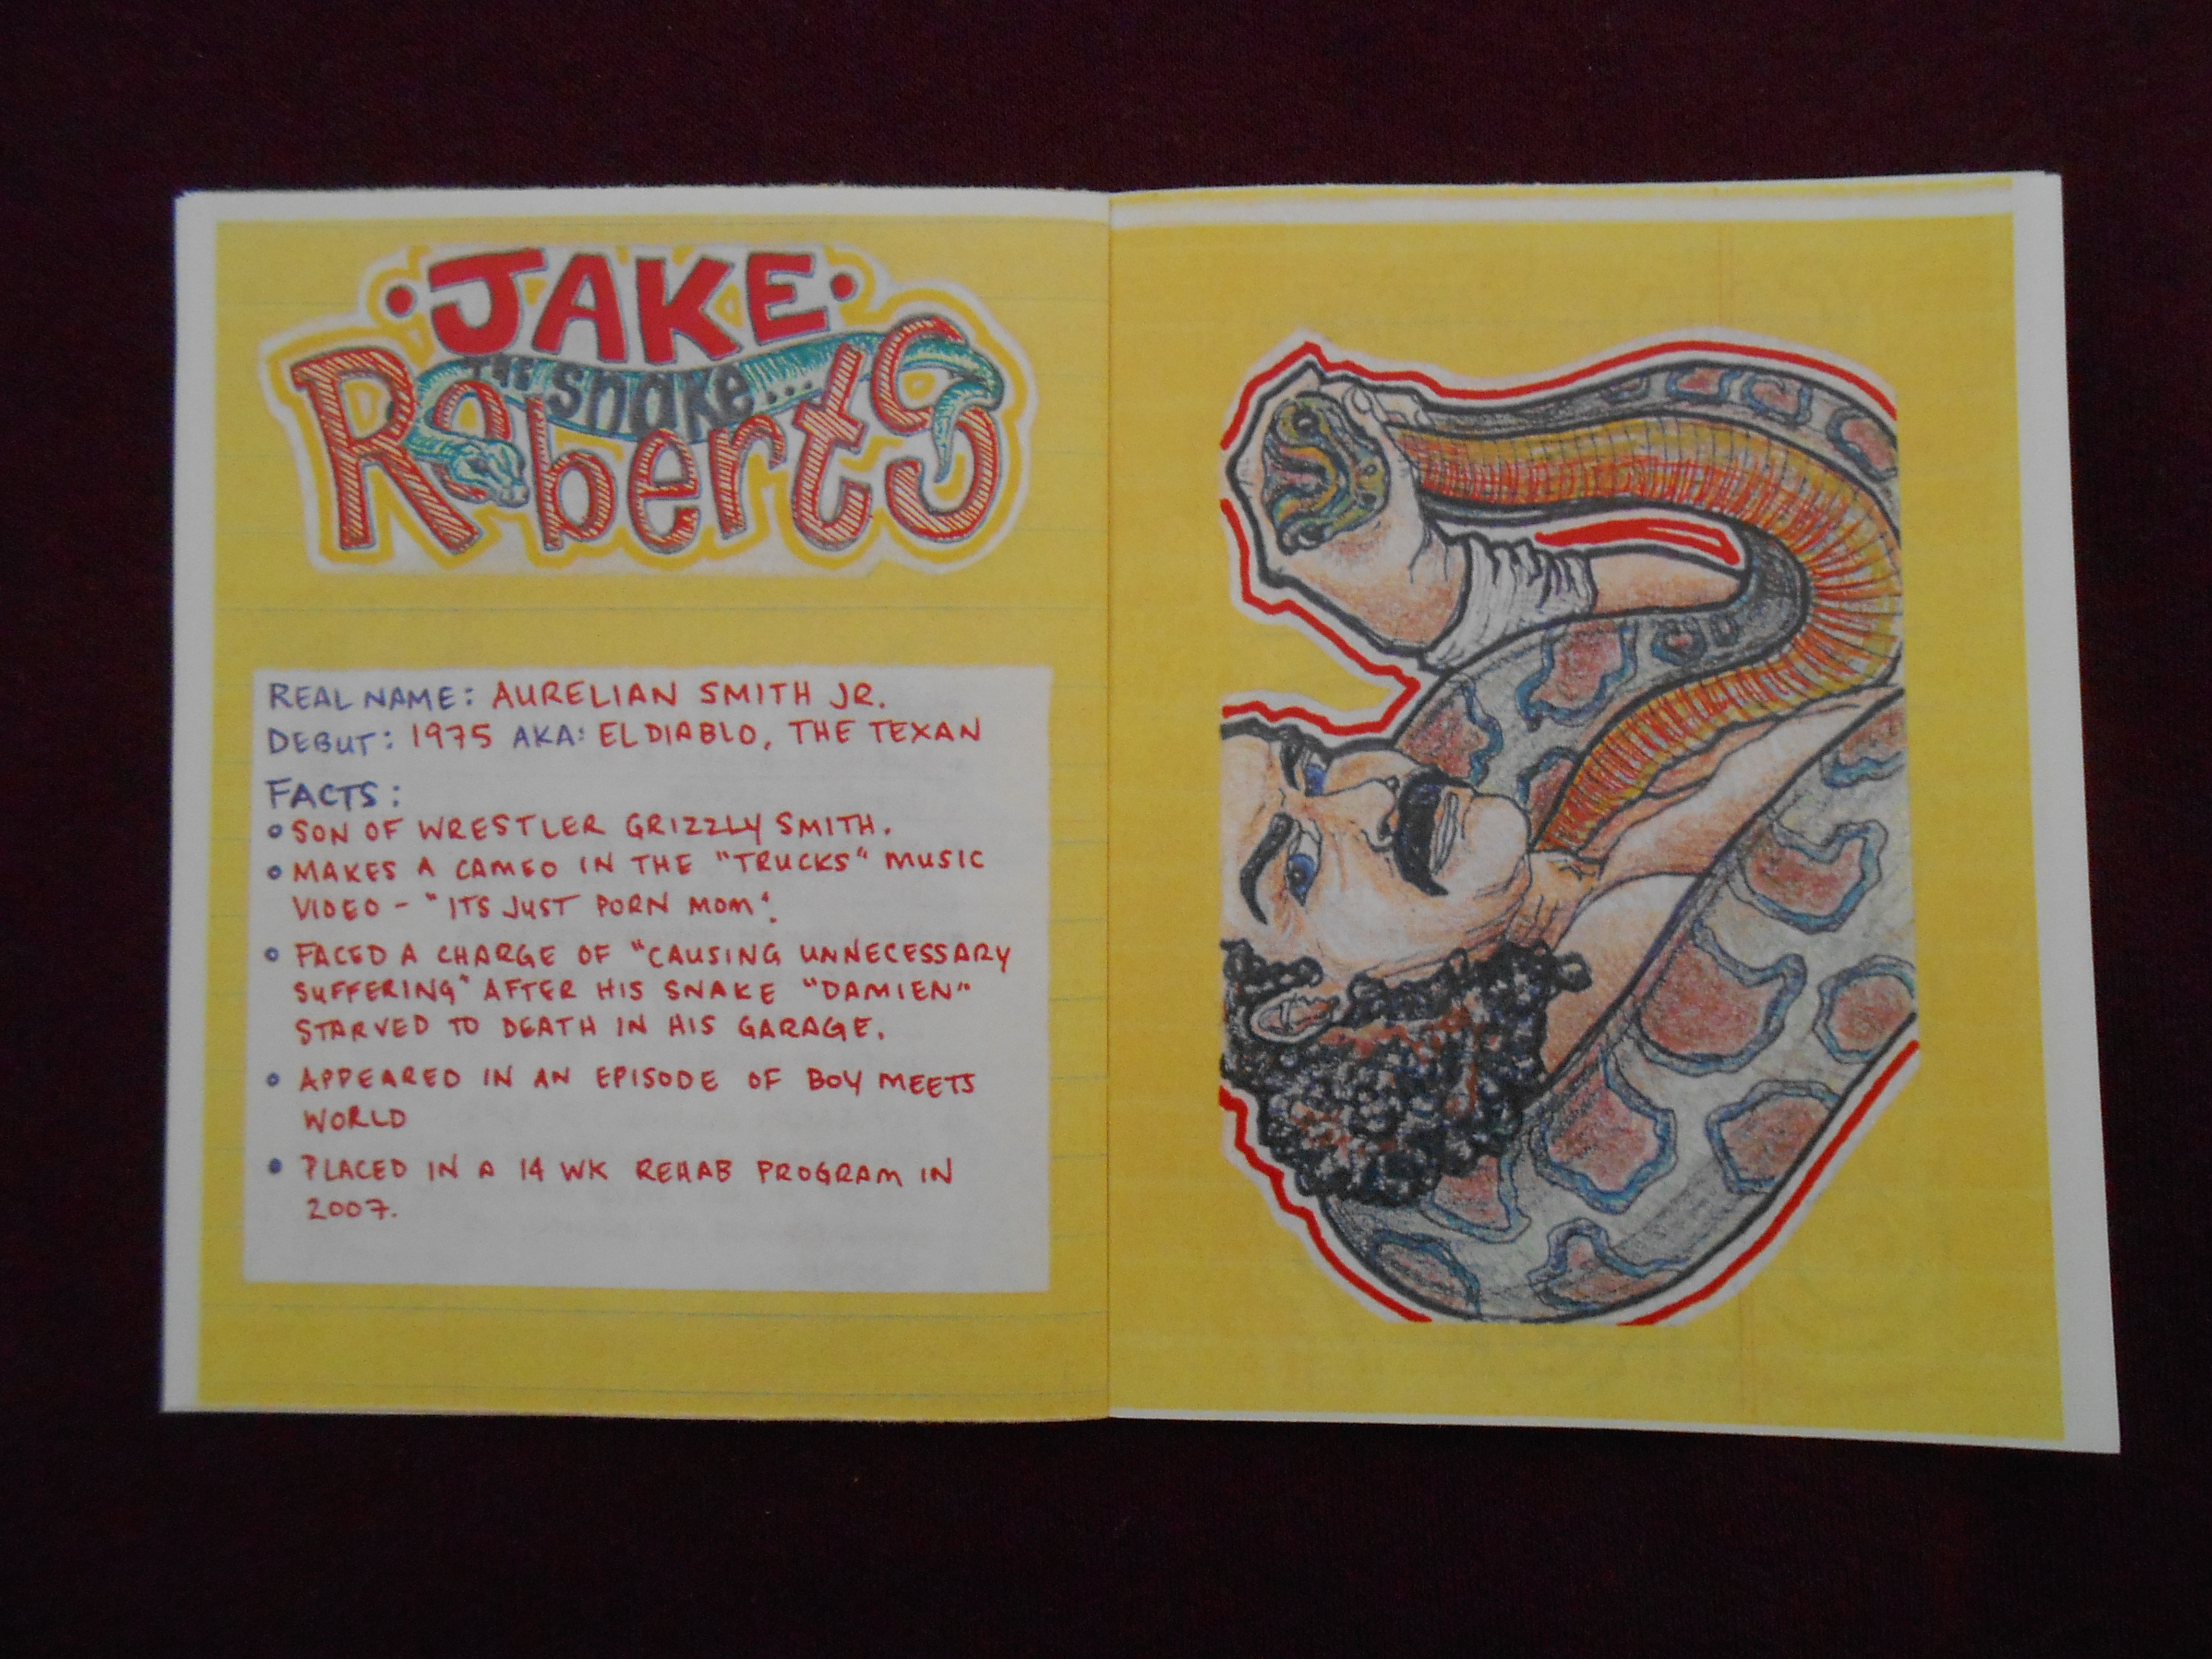 •JAKE•
THE snake...
Roberts
REAL NAME: AURELIAN SMITH JR.
DEBUT: 1975 AKA: EL DIABLO, THE TEXAN
FACTS:
• SON OF WRESTLER GRIZZLY SMITH.
• MAKES A CAMEO IN THE "TRUCKS" MUSIC
VIDEO - "ITS JUST PORN MOM".
• FACED A CHARGE OF "CAUSING UNNECESSARY
SUFFERING" AFTER HIS SNAKE "DAMIEN"
STARVED TO DEATH IN HIS GARAGE.
• APPEARED IN AN EPISODE OF BOY MEETS
WORLD
• PLACED IN A 14 WK REHAB PROGRAM IN
2007.